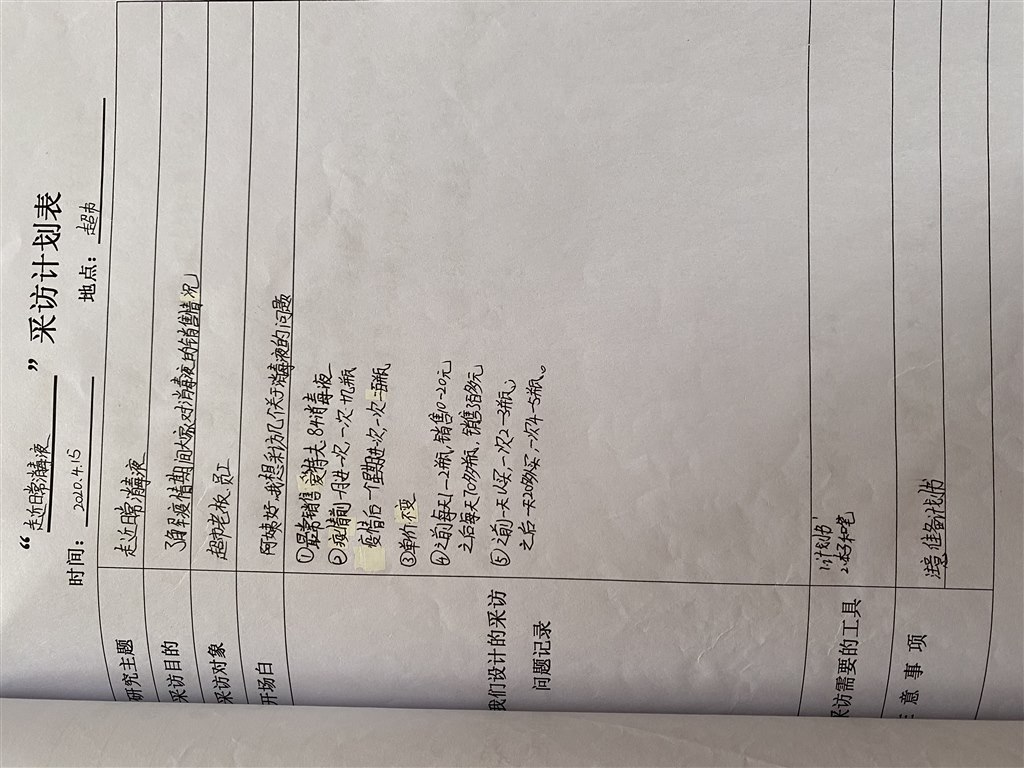 “走近日常消毒液”采访计划表
时间：2020.4.15 地点：超市
研究主题 走近日常消毒液
采访目的 了解疫情期间大家对消毒液的销售情况
采访对象 超市老板员工
开场白 阿姨好,我想采访几个关于消毒液的问题
我们设计的采访
问题记录
①最常销售 爱特夫84消毒液
②疫情前一月进一次,一次十几瓶
疫情后一个星期进一次,一次一百瓶
③单价不变
④之前每天1-2瓶,销售10-20元
之后每天70多瓶,销售350多元
⑤之前一天1人买,一次2-3瓶;
之后一天20多人买,一次4-5瓶。
采访需要的工具
1.计划书
2.本子和笔
注意事项